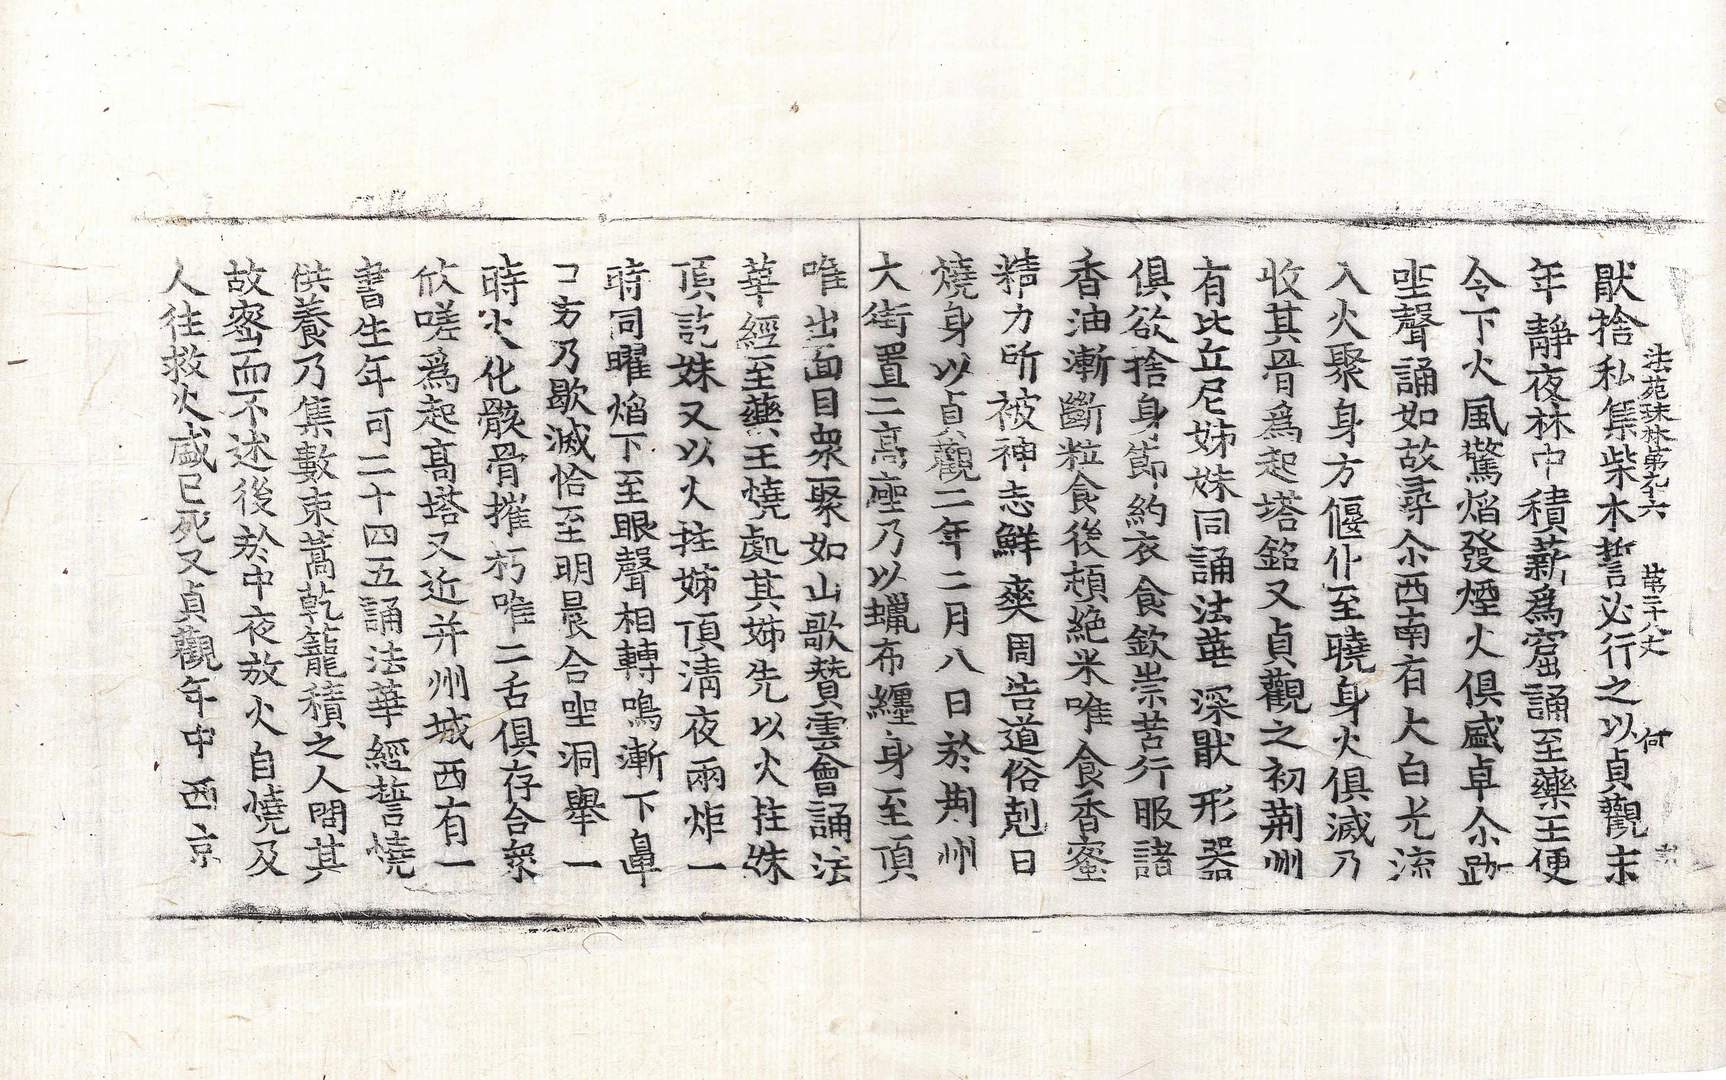 法苑珠林第九十六 第二十八丈 何
猒捨私集柴木誓必行之以貞觀末
年靜夜林中積薪爲窟誦至藥王便
令下火風驚焰發煙火俱盛卓尒跏
坐聲誦如故尋尒西南有大白光流
入火聚身方偃仆至曉身火俱滅乃
收其骨爲起塔銘又貞觀之初荆州
有比丘尼姊妹同誦法華深猒形器
俱欲捨身節約衣食欽崇苦行服諸
香油漸斷粒食後頼絶米唯食香蜜
精力所被神志鮮爽周告道俗剋日
燒身以貞觀二年二月八日於荆州
大街置二高座乃以蠟布纏身至頂
唯出面目衆聚如山歌贊雲會誦法
華經至藥王燒處其姊先以火拄妹
頂訖妹又以火拄姊頂淸夜兩炬一
時同曜焰下至眼聲相轉鳴漸下鼻
口方乃歇滅恰至明晨合坐洞舉一
時火化骸骨摧朽唯二舌俱存合衆
欣嗟爲起高塔又近并州城西有一
書生年可二十四五誦法華經誓燒
供養乃集數束蒿乾籠積之人問其
故密而不述後於中夜放火自燒及
人往救火盛已死又貞觀年中西京